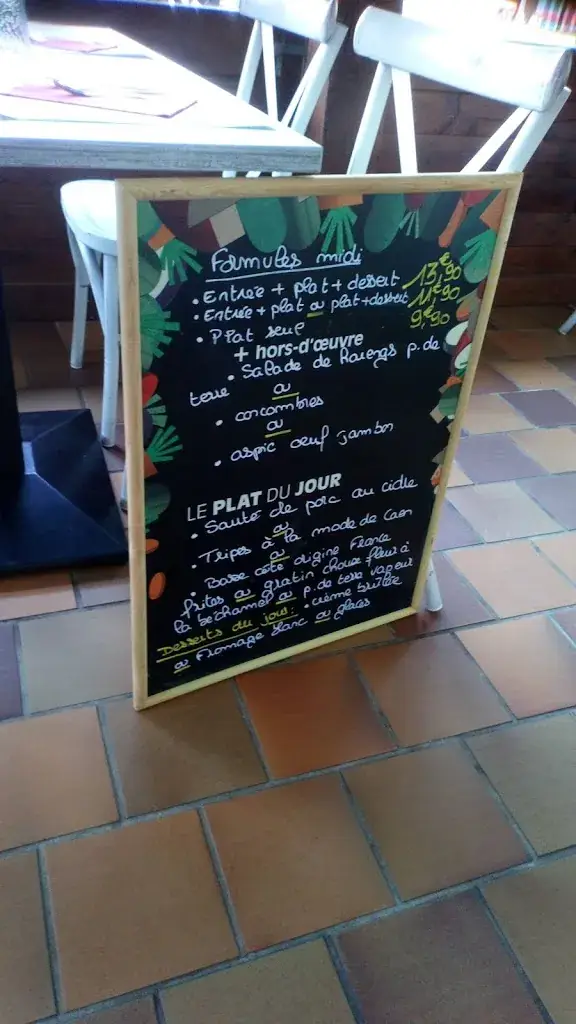 Formules midi
• Entrée + plat + dessert 13€,90
• Entrée + plat ou plat + dessert 11€,90
• Plat seul 9€,90
+ hors-d'œuvre
• Salade de harengs p. de
terre ou
• concombres
ou
• aspic oeuf jambon
LE PLAT DU JOUR
• Sauté de porc au cidre
ou
• Tripes à la mode de Caen
ou
• Basse côte origine France
frites ou gratin choux fleur à
la béchamel ou p. de terre vapeur
Desserts du jour: • crème brûlée
ou fromage blanc ou glaces